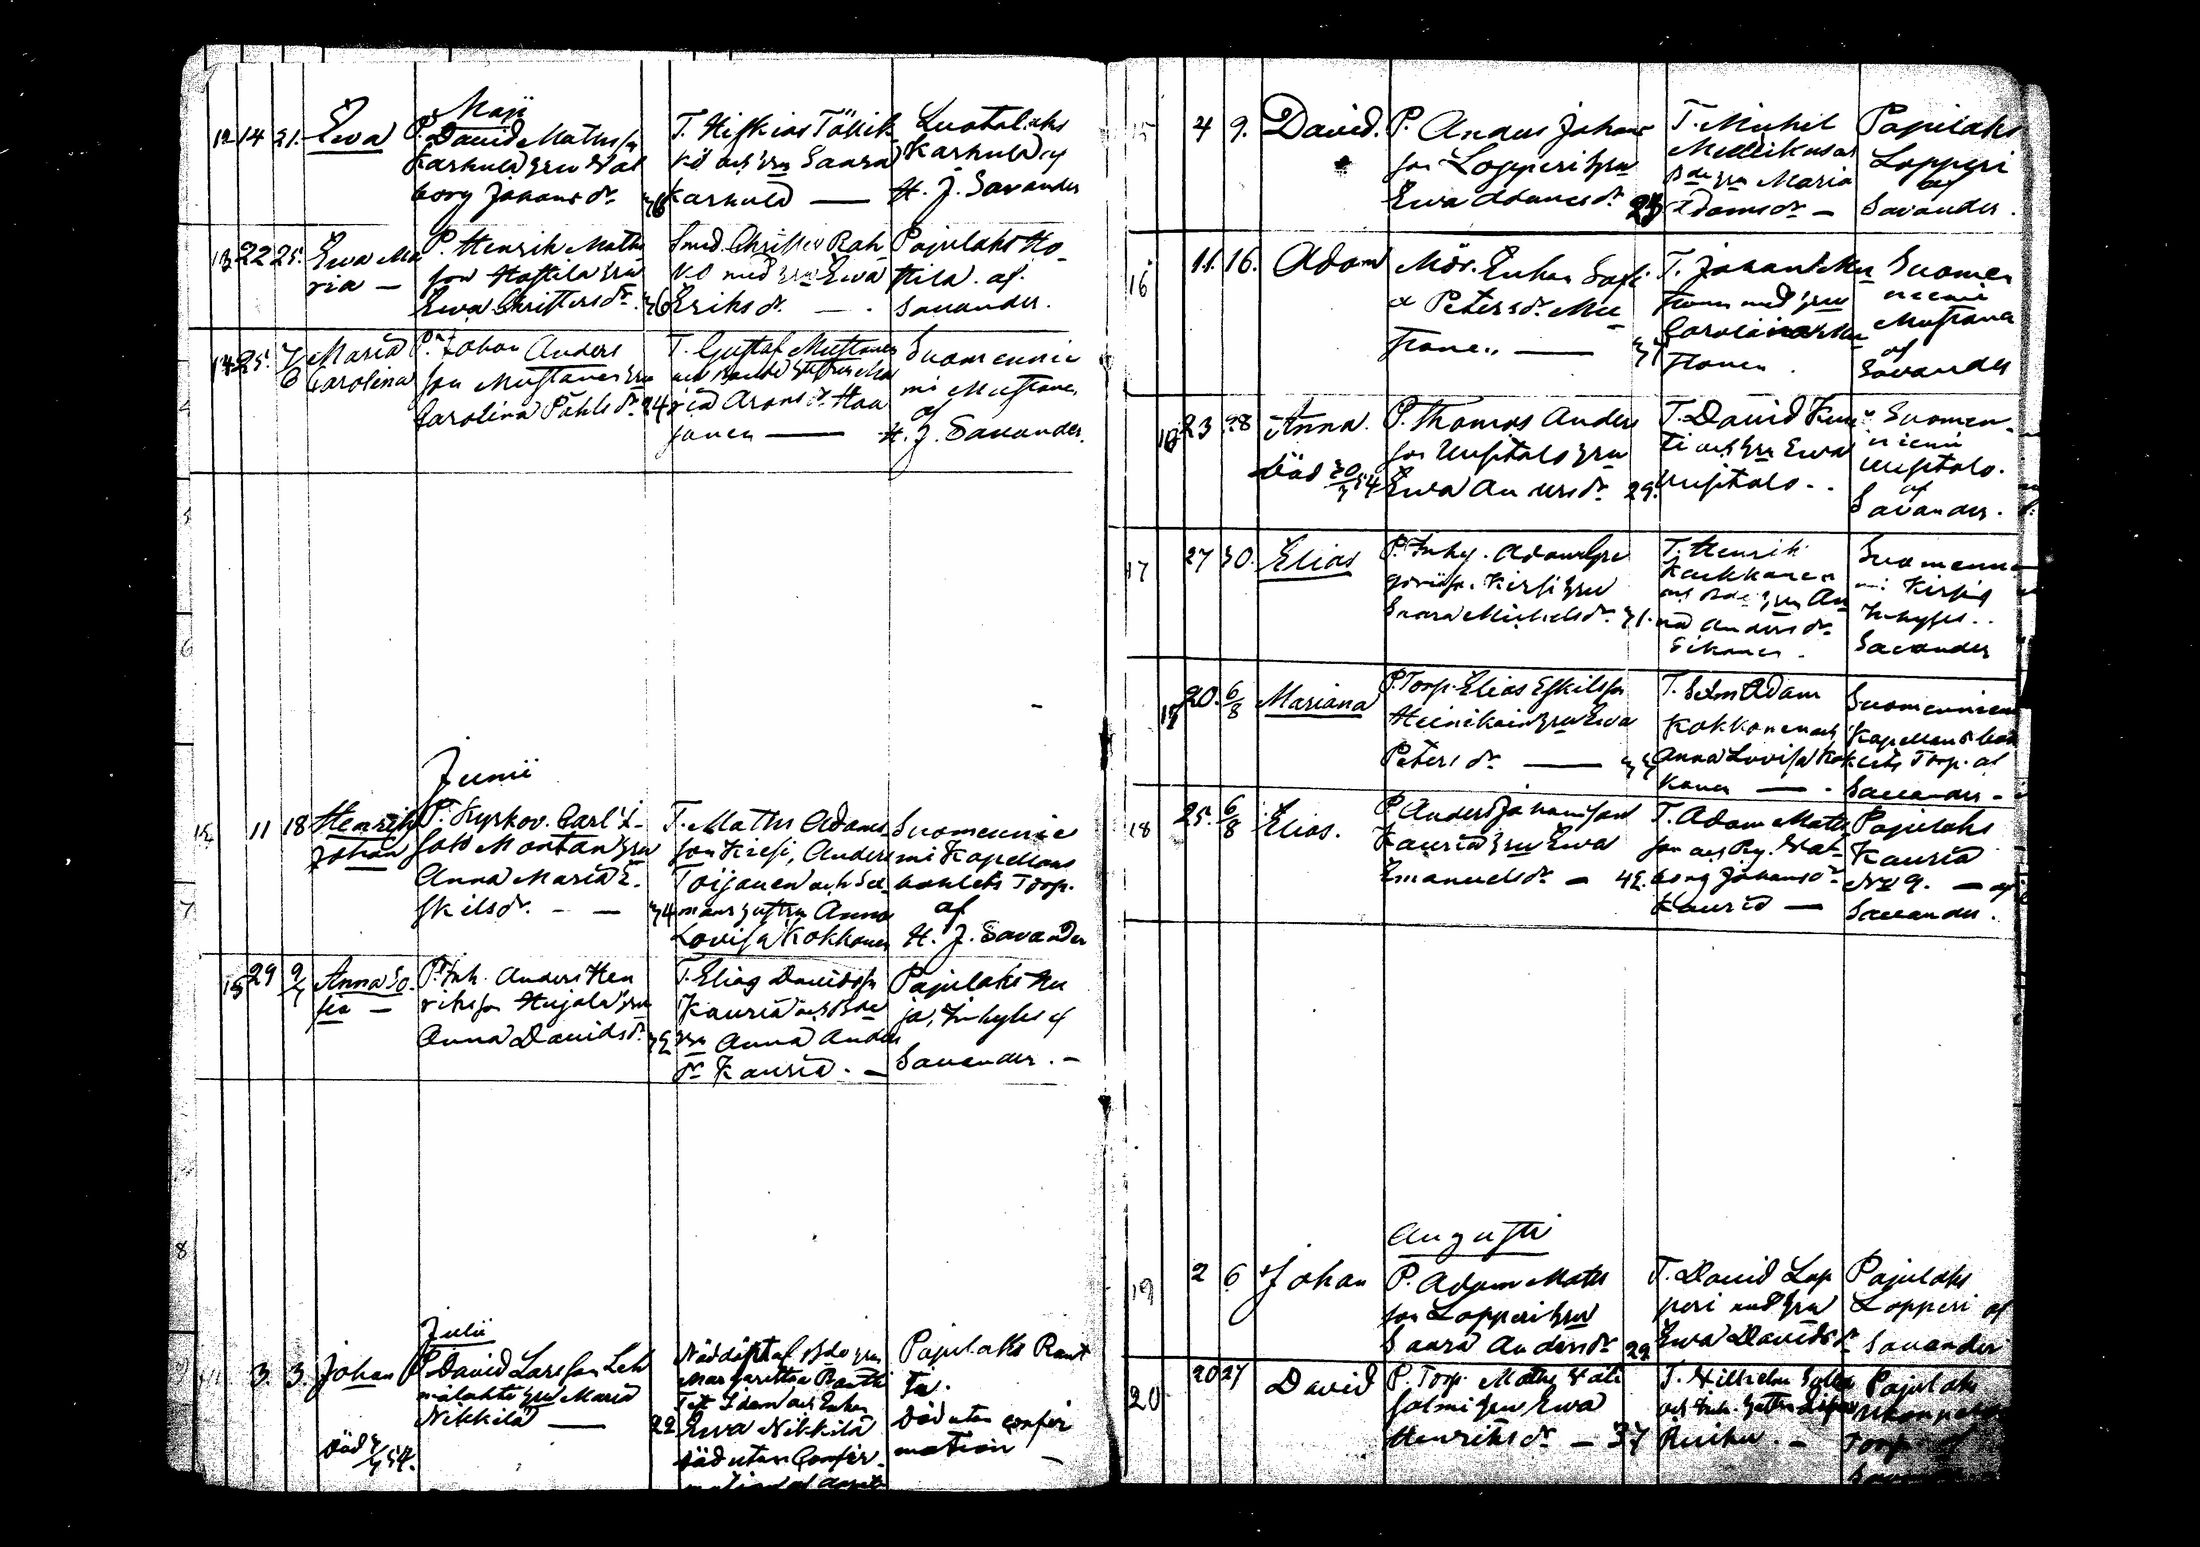 Maji
12 14 21. Ewa
P. David Matts sn
Karhula hru Wal
borg Johans dr. 36
T. Hiskias Törik
kö och hru Saara
Karhula —
Luotolaks
Karhula af
H. J. Savander
13 22 25. Ewa Ma
ria —
P. Henrik Matts
son Hostila hru
Ewa Christers dr. 36
Smed. Christer Rah
ko med hru Ewa
Eriks dr. — .
Papulaks Ho-
stila. af.
Savander.
14 25. 7/6 Maria
Carolina
P. Johan Anders
son Mustanen hru
Carolina Påhls dr. 24
T. Gustaf Mustanen
och
ria Arons dr. Haa
janen —
Suomennie
mi Mustanen
af
H. J. Savander.
Junii
11 18 Henrik
Johan
P. Kyrkov. Carl I-
sak Montan hru
Anna Maria E.
skils dr. - — 34
T. Matts Adams
son Kirsi, Anders
Toijanen och Sol
mans hustru Anna
Lovisa Kokkonen
Suomennie
mi Kapellans
bohlets Torp.
af
H. J. Savander
15 29 9/7 Anna So
fia —
P. Inh. Anders Hen
riksson Hujala hru
Anna Davids dr. 32
T. Elias Davidsson
Kauria och Bde
hru Anna Anders
dr Kauria. —
Papulaks Hu
ja, Inhyses af
Savander. —
Julii
3. 3. Johan
P. David Larsson Leh
mälahti hru Maria
Nikkilä — 22
Död 3/7 54.
Nöddöpt af Bde hru
Margaretha Rantt
Test. Idem och Enkan
Ewa Nikkilä
död utan Confir-
Papulaks Rant
ta.
Död utan confir
mation —
4 9. David.
P. Anders Johans
son Lopperi hru
Ewa Adams dr. 23
T. Michel
Bde hru Maria
Adams dr —
Papulaks
Lopperi
af
Savander.
16 11. 16. Adam
Mör. Enkan Sofi
a Peters dr. Mu
stonen. — 37
T. Johan Mu
stonen med hru
Carolina Mu
stonen .
Suomen
niemi
Mustana
af
Savander
16 23 28 Anna.
Död 30/7 54
P. Thomas Anders
son Uusitalo hru
Ewa Anders dr. 29.
T. David Kun
ti och hru Ewa
Uusitalo. .
Suomen-
niemi
Uusitalo.
af
Savander.
17 27 30. Elias
P. Inhy. Adam Gre
goriisn. Kirsi hru
Saara Michels dr. 31.
T. Henrik
Kaukkanen
och Bde hru An
na Anders dr.
Sikanen.
Suomennie
mi Kirsi
Inhyses..
Savander
20. 6/8 Mariana
P. Torp. Elias Eskilsson
Heinikain hru Ewa
Peters dr. —
T. Adam
Kokkonen och
Anna Lovisa Kok
konen — .
Suomenniemi
Kapellans boh
lets Torp. af
Savander —
18 25. 6/8 Elias.
P. Anders Johansson
Kauria hru Ewa
Emanuels dr — 42.
T. Adam Matts
son och Pig. Wal-
borg Johans dr
Kauria —
Papulaks
Kauria
No 9. — af
Savander.
Augusti
19 2 6. Johan
P. Adam Matts
son Lopperi hru
Saara Anders dr 22
T. David Lop
peri med hru
Ewa Davids dr
Papulaks
Lopperi af
Savander
20 20 27 David
P. Torp. Matts Väli
salmi hru Ewa
Henriks dr — 37
T. Wilhelm
Papulaks
Torp. af